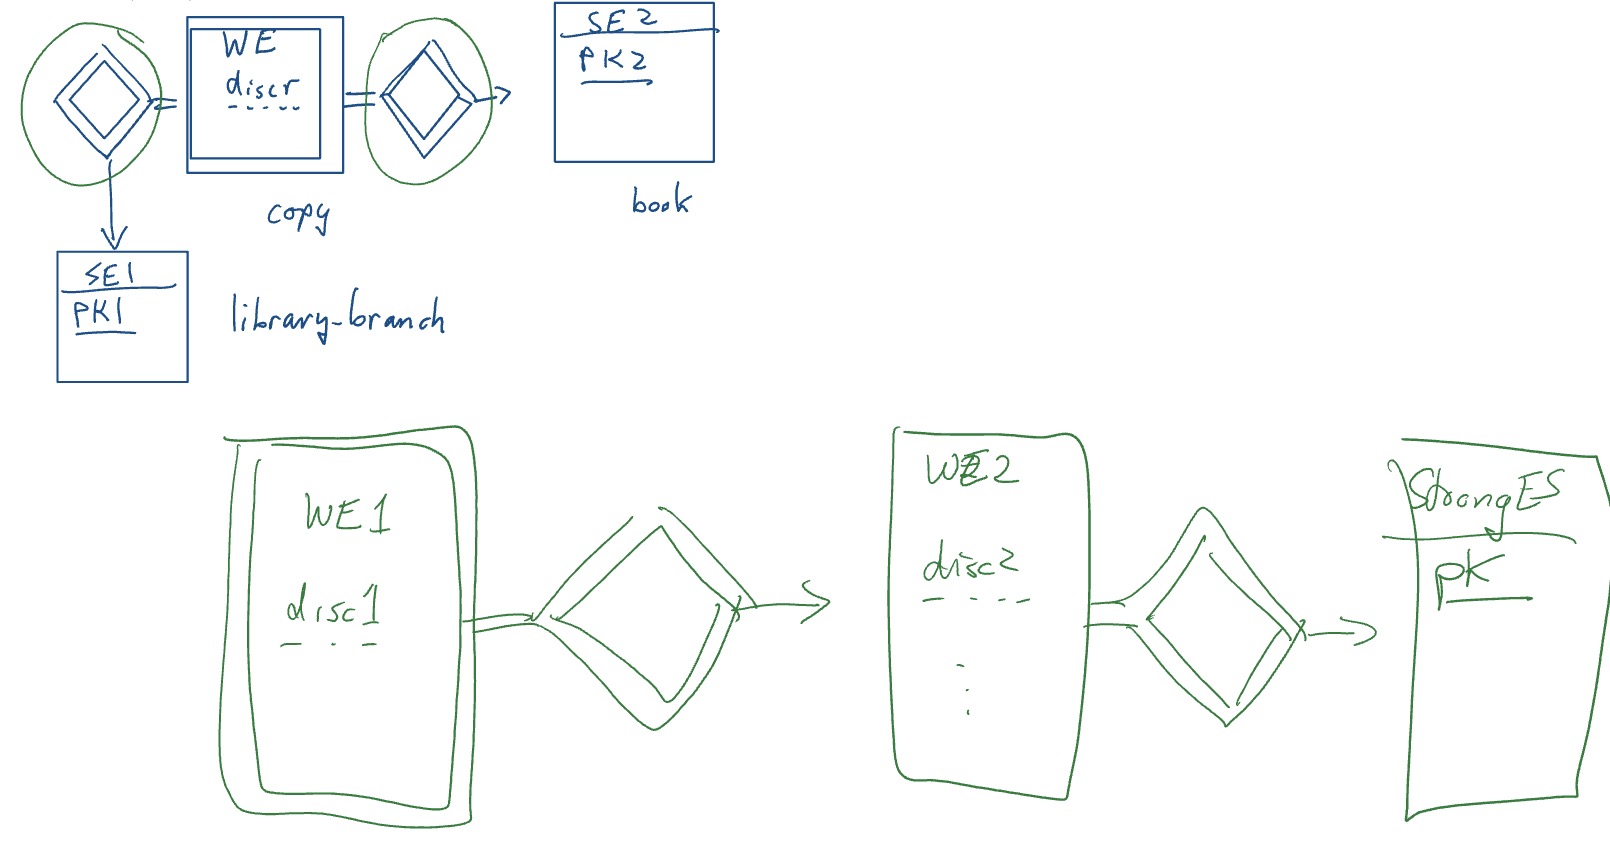 WE
discr
SE2
PK2
copy
book
SE1
PK1
library-branch
WE1
disc1
WE2
disc2
StrongES
pK